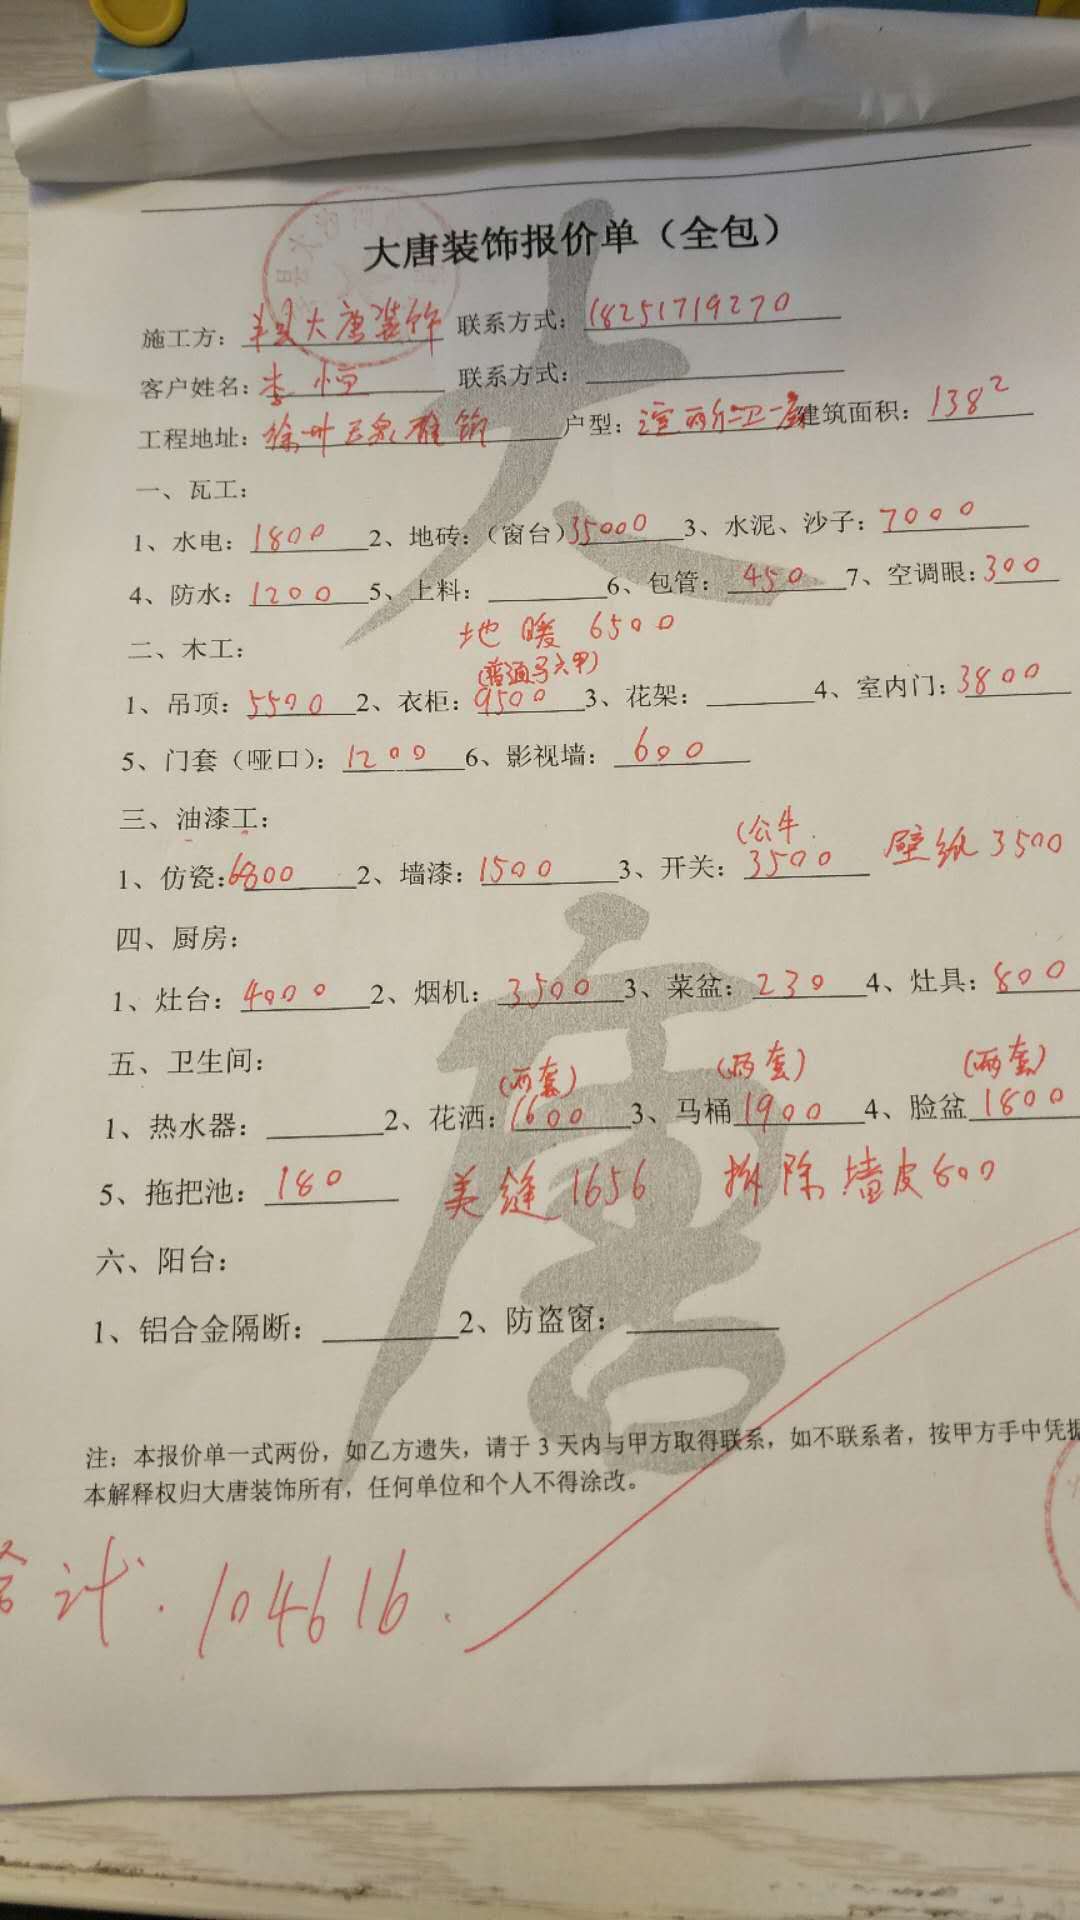 大唐装饰报价单（全包）
施工方：丰县大唐装饰 联系方式：18251719270
客户姓名：李恒 联系方式：
工程地址：徐州 户型：两厅二卫一 建筑面积：138²
一、瓦工：
1、水电：1800 2、地砖：（窗台）35000 3、水泥、沙子：7000
4、防水：1200 5、上料： 6、包管：450 7、空调眼：300
地暖 6500
二、木工：
(普通马六甲)
1、吊顶：5500 2、衣柜：9500 3、花架： 4、室内门：3800
5、门套（哑口）：1200 6、影视墙：600
三、油漆工：
(公牛 壁纸 3500
1、仿瓷：6800 2、墙漆：1500 3、开关：3500
四、厨房：
1、灶台：4000 2、烟机：3500 3、菜盆：230 4、灶具：800
五、卫生间：
(两套) (两套) (两套)
1、热水器： 2、花洒：1600 3、马桶1900 4、脸盆1800
5、拖把池：180 美缝1656 拆除墙皮800
六、阳台：
1、铝合金隔断： 2、防盗窗：
注：本报价单一式两份，如乙方遗失，请于3天内与甲方取得联系，如不联系者，按甲方手中凭据
本解释权归大唐装饰所有，任何单位和个人不得涂改。
合计．104616．
大唐